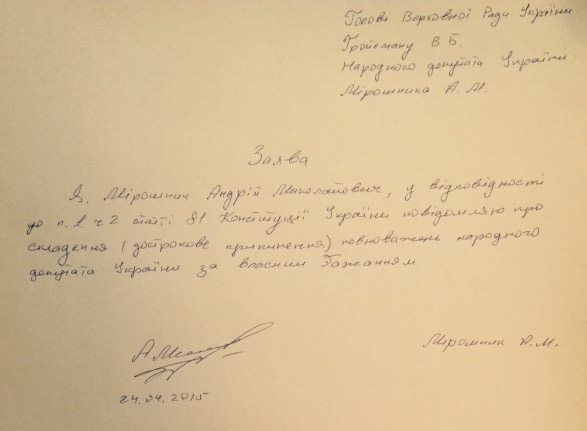 Голові Верховної Ради України
Гройсману В Б.
Народного депутата України
Мірошника А. М.
Заява
Я, Мірошник Андрій Миколайович, у відповідності
до п. 1. ч 2 статі 81 Конституції України повідомляю про
складення (дострокове припинення) повноважень народного
депутата України за власним бажанням
24.04.2015
Мірошник А.М.